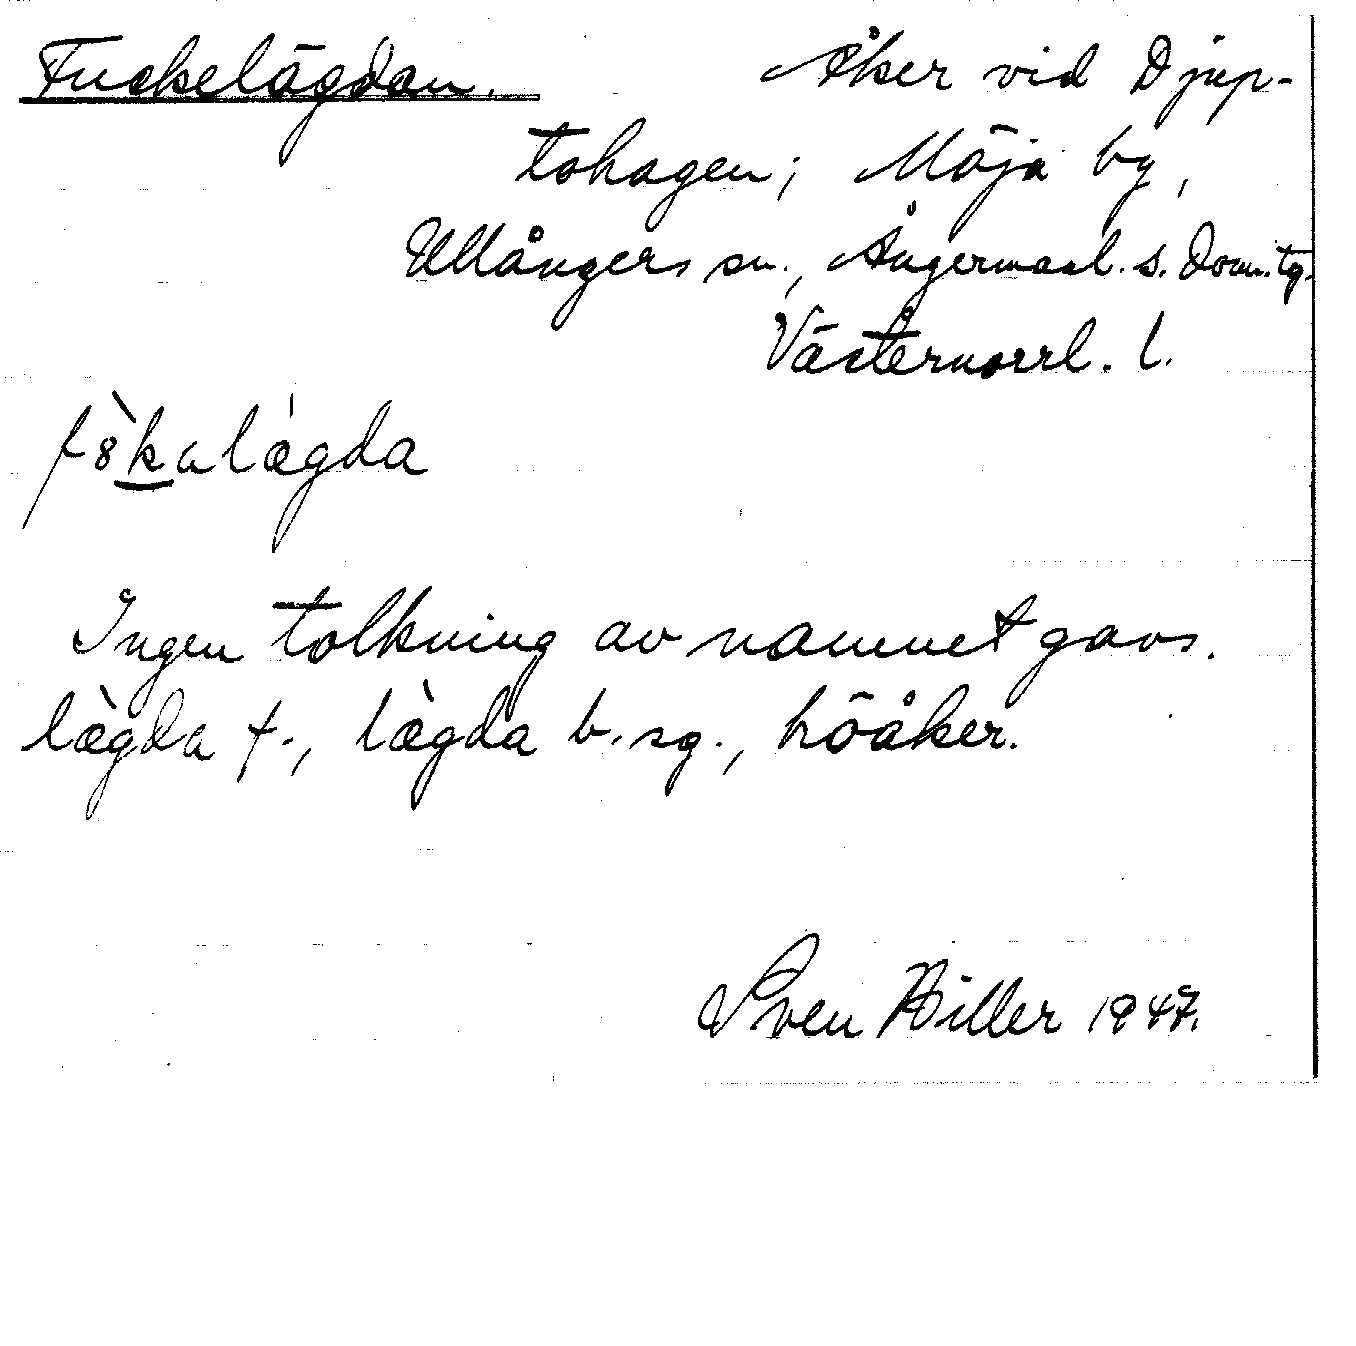 Fuckelägdan. Åker vid Djup-
tohagen; Mäja by,
Ullångers sn., Ångermanl. s. Dom.tg.
Västernorrl. l.
f8̀kalǽgda
Ingen tolkning av namnet gavs.
læ̀gda f., læ̀gda b.sg., höåker.
Sven Hiller 1947.